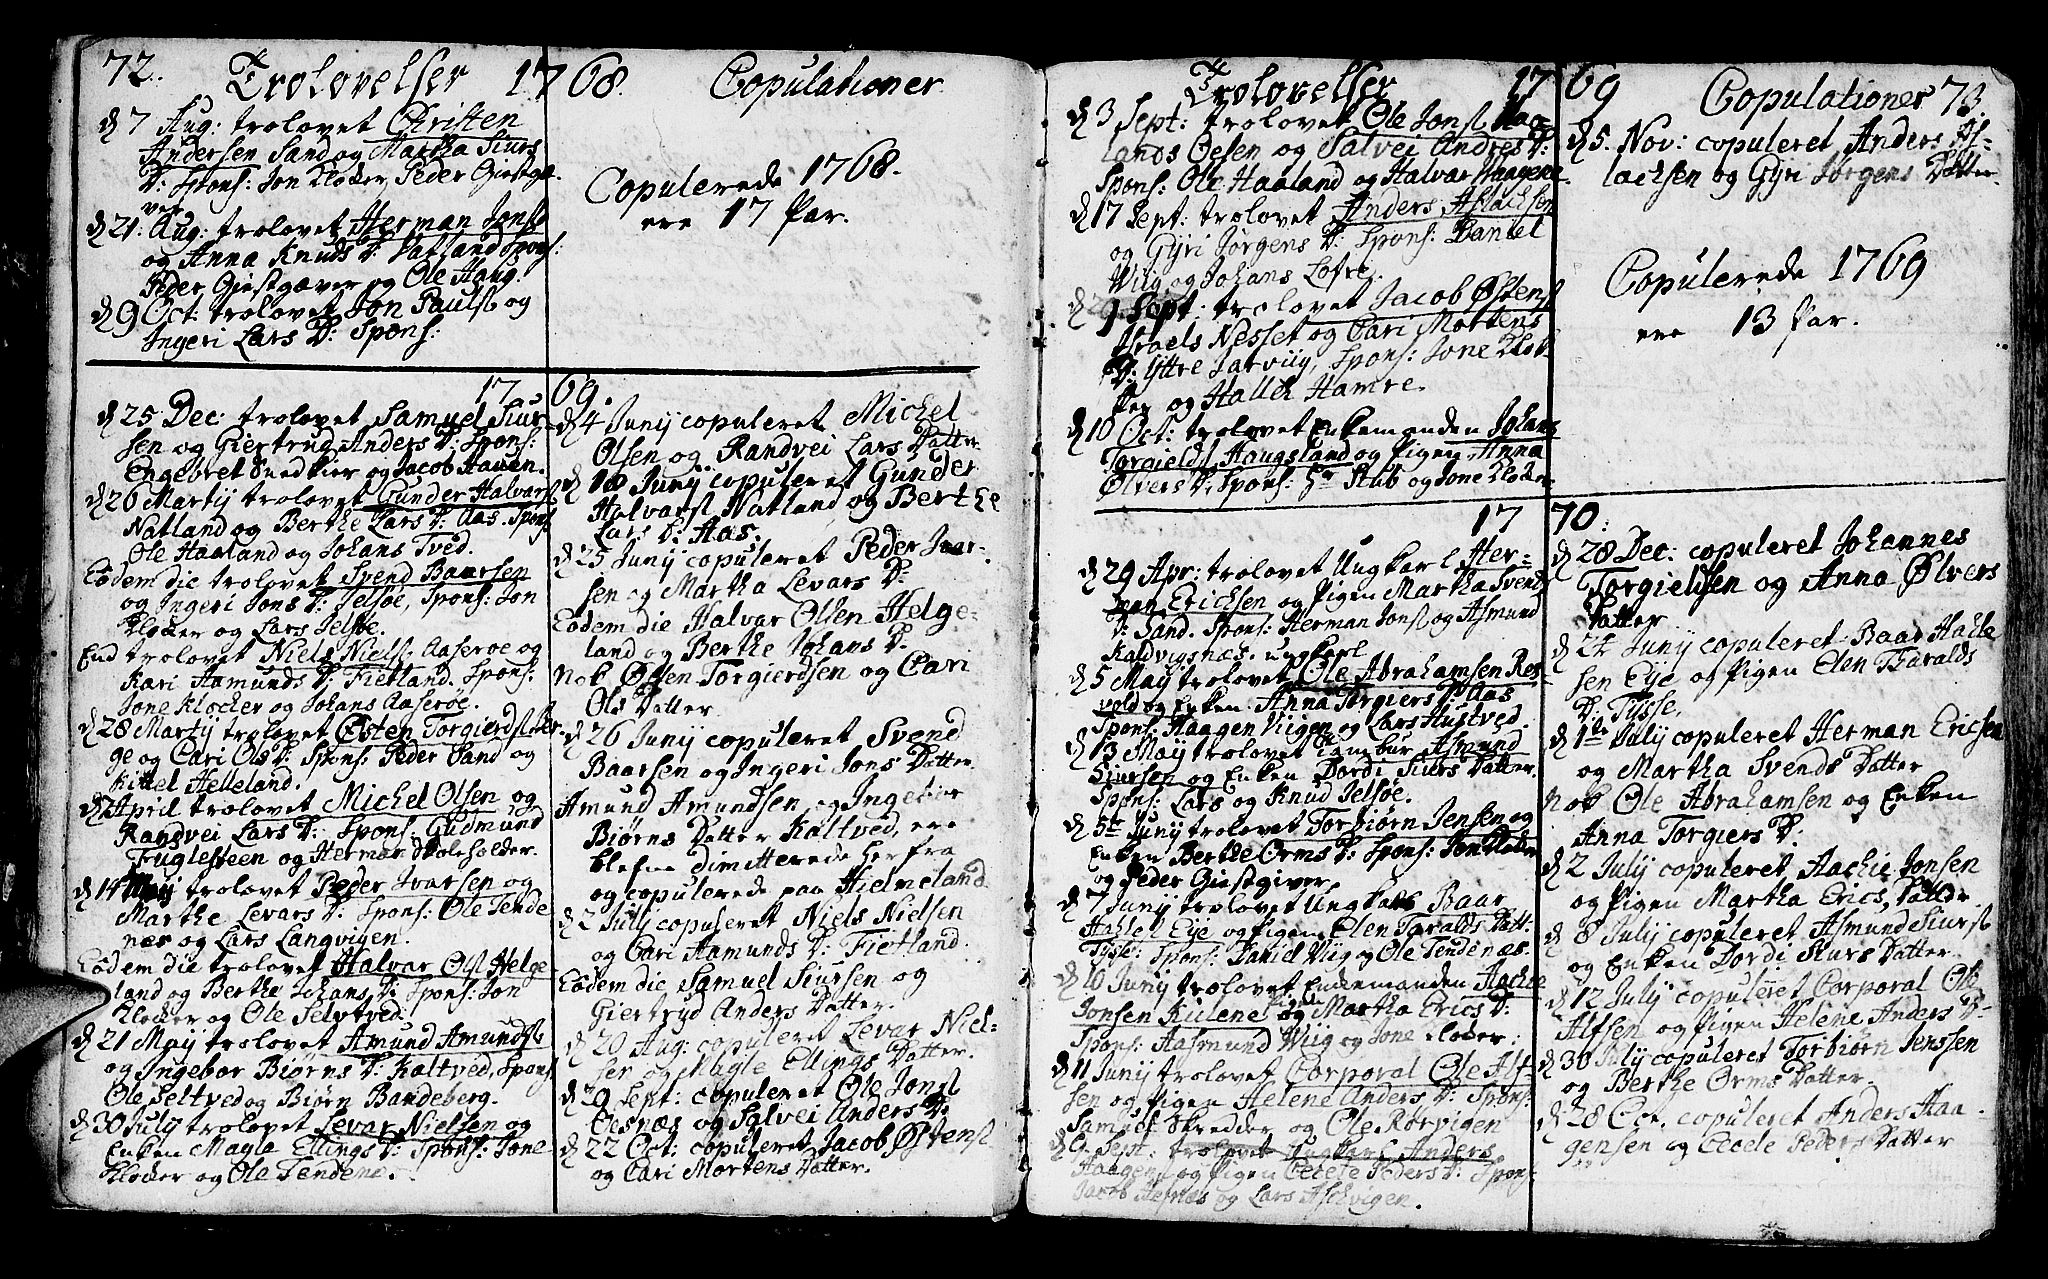 72. Trolovelser 1768 Copulationer
d 7 Aug: trolovet Christen
Andersen Sand og Martha Siurs
D: Spons: Jon Kloker, Peder Giestgæ-
ver
d 21. Aug: trolovet Herman Jons
og Anna Knuds D: Natland Spons:
Peder Giestgæver og Ole Haug.
d 9 Oct: trolovet Jon Pauls og
Ingeri Lars D: Spons:
Copulerede 1768.
ere 17 Par.
1769.
d 25 Dec: trolovet Samuel Siur-
sen og Giertrud Anders D: Spons:
Engebret Snedkier og Jacob Hauen.
d 26 Martij trolovet Gunder Halvars
Natland og Berthe Lars D: Aas. Spons
Ole Haaland og Johans Tved.
Eodem die trolovet Svend Baarsen
og Ingeri Jons D: Jelsøe, Spons: Jon
Kloker og Lars Jelsøe.
End trolovet Niels Niels: Aaserøe og
Kari Aamunds D: Fietland. Spons:
Jone Klocker og Johans Aaserøe.
d 28 Martij trolovet Østen Torgierds
ge og Cari Ols D: Spons: Peder Sand og
Kittel Helleland.
d April trolovet Michel Olsen og
Randvei Lars D: Spons: Gudmund
Fuglesteen og Herman Skoleholder.
d 14 May trolovet Peder Ivarsen og
Marthe Levars D: Spons: Ole Tende
næs og Lars Langvigen.
Eodem die trolovet Halvar Ols Helge
land og Berthe Johans D: Spons: Jon
Kloker og Ole Seltved.
d 21 May trolovet Amund Amunds
og Ingebor Biørns D: Kaltved, Spons
Ole Seltved og Biørn Bandeberg.
d 30 July trolovet Levar Nielsen og
Enken Magle Ellings D: Spons: Jone
Kloker og Ole Tendene.
d 4 Junij copuleret Michel
Olsen og Randvei Lars Datter
d 18 Junij copuleret Gunder
Halvars Natland og Berthe
Lars D: Aas.
d 25 Junij copuleret Peder Ivar-
sen og Martha Levars D:
Eodem die Halvar Olsen Helge-
land og Berthe Johans D:
Nob Østen Torgierdsen og Cari
Ols Datter
d 26 Junij copuleret Svend
Baarsen og Ingeri Jons Datter
Amund Amundsen og Ingebor
Biørns Datter Kaltved, ere
blefne dimitterede herfra
og copulerede paa Hielmeland
d 2 July copuleret Niels Nielsen
og Cari Aamunds D: Fietland.
Eodem die Samuel Siursen og
Giertryd Anders Datter
d 20 Aug: copuleret Levar Niel-
sen og Magle Ellings Datter.
d 29 Sept: copuleret Ole Jons
Oesnæs og Salvei Anders D:
d 22 Oct: copuleret Jacob Østens
og Cari Mortens Datter.
Trolovelser 1769 Copulationer 73.
d 3 Sept: trolovet Ole Jons Haa-
lands Oesen og Salvei Andres D:
Spons: Ole Haaland og Halvar Haagene
d 17 Sept: trolovet Anders Aslachsen
og Gyri Jørgens D: Spons: Daniel
Wiig og Johans Lofre.
d Sept: trolovet Jacob Østens
Israels Nesset og Cari Mortens
D: Yttre Jarviig, Spons: Jone Klok-
ker og Halle Hamre.
d 10 Oct: trolovet Enkemanden Johans
Torgields Haugsland og Pigen Anna
Ølvers D: Spons: Stub og Jone Kloker
d 5. Nov: copuleret Anders As-
lachsen og Gyri Jørgens Datter.
Copulerede 1769
ere 13 Par.
1770:
d 29 Apr: trolovet Ungkarl Her-
man Erichsen og Pigen Martha Svends
D: Sand. Spons: Herman Jons og Asmund
Kaldvigsnæs. ungkarl
d 5 May trolovet Ole Abrahamsen Res
vold og Enken Anna Torgiers D: Aas
Spons: Haagen Viigen og Lars Hustved.
d 13 May trolovet Tambur Asmund
Siursen og Enken Dordi Siurs Datter.
Spons: Lars og Knud Jelsøe.
d 5te Junij trolovet Torbiørn Jensen og
Enken Berthe Orms D: Spons: Jon Kloker
og Peder Giestgiver
d 7 Junij trolovet Ungkarl Baar
Hachel Eye og Pigen Elen Taralds Datt:
Tysse: Spons: Daniel Viig og Ole Tendenæs.
d 10 Junij trolovet Enkemanden Aachie
Jonsen Kielene og Pigen Martha Erics D:
Spons: Aasmund Wiig og Jone Kloker.
d 11 Junij trolovet Corporal Ole Alf-
sen og Pigen Helene Anders D: Spons:
Samuel Skredder og Ole Rørvigen
d 9 Sept: trolovet Ungkarl Anders
Haagens og Pigen Cecele Peders D: Spons:
Jacob Hesnæs og Lars Aschvigen.
d 28 Dec: copuleret Johannes
Torgieldsen og Anna Ølvers
Datter
d 24 Junij copuleret Baar Hachel
sen Eye og Pigen Elen Taralds
D: Tysse.
d 1ste July copuleret Herman Ericsen
og Martha Svends Datter
Nob Ole Abrahamsen og Enken
Anna Torgiers D:
d 2 July copuleret Aachie Jonsen
og Pigen Martha Erics Datter
d 8 July copuleret Asmund Siurs
og Enken Dordi Siurs Datter.
d 12 July copuleret Corporal Ole
Alfsen og Pigen Helene Anders D:
d 30 July copuleret Torbiørn Jenssen
og Berthe Orms Datter
d 28 Oct. copuleret Anders Haa-
gensen og Cecele Peders Datter